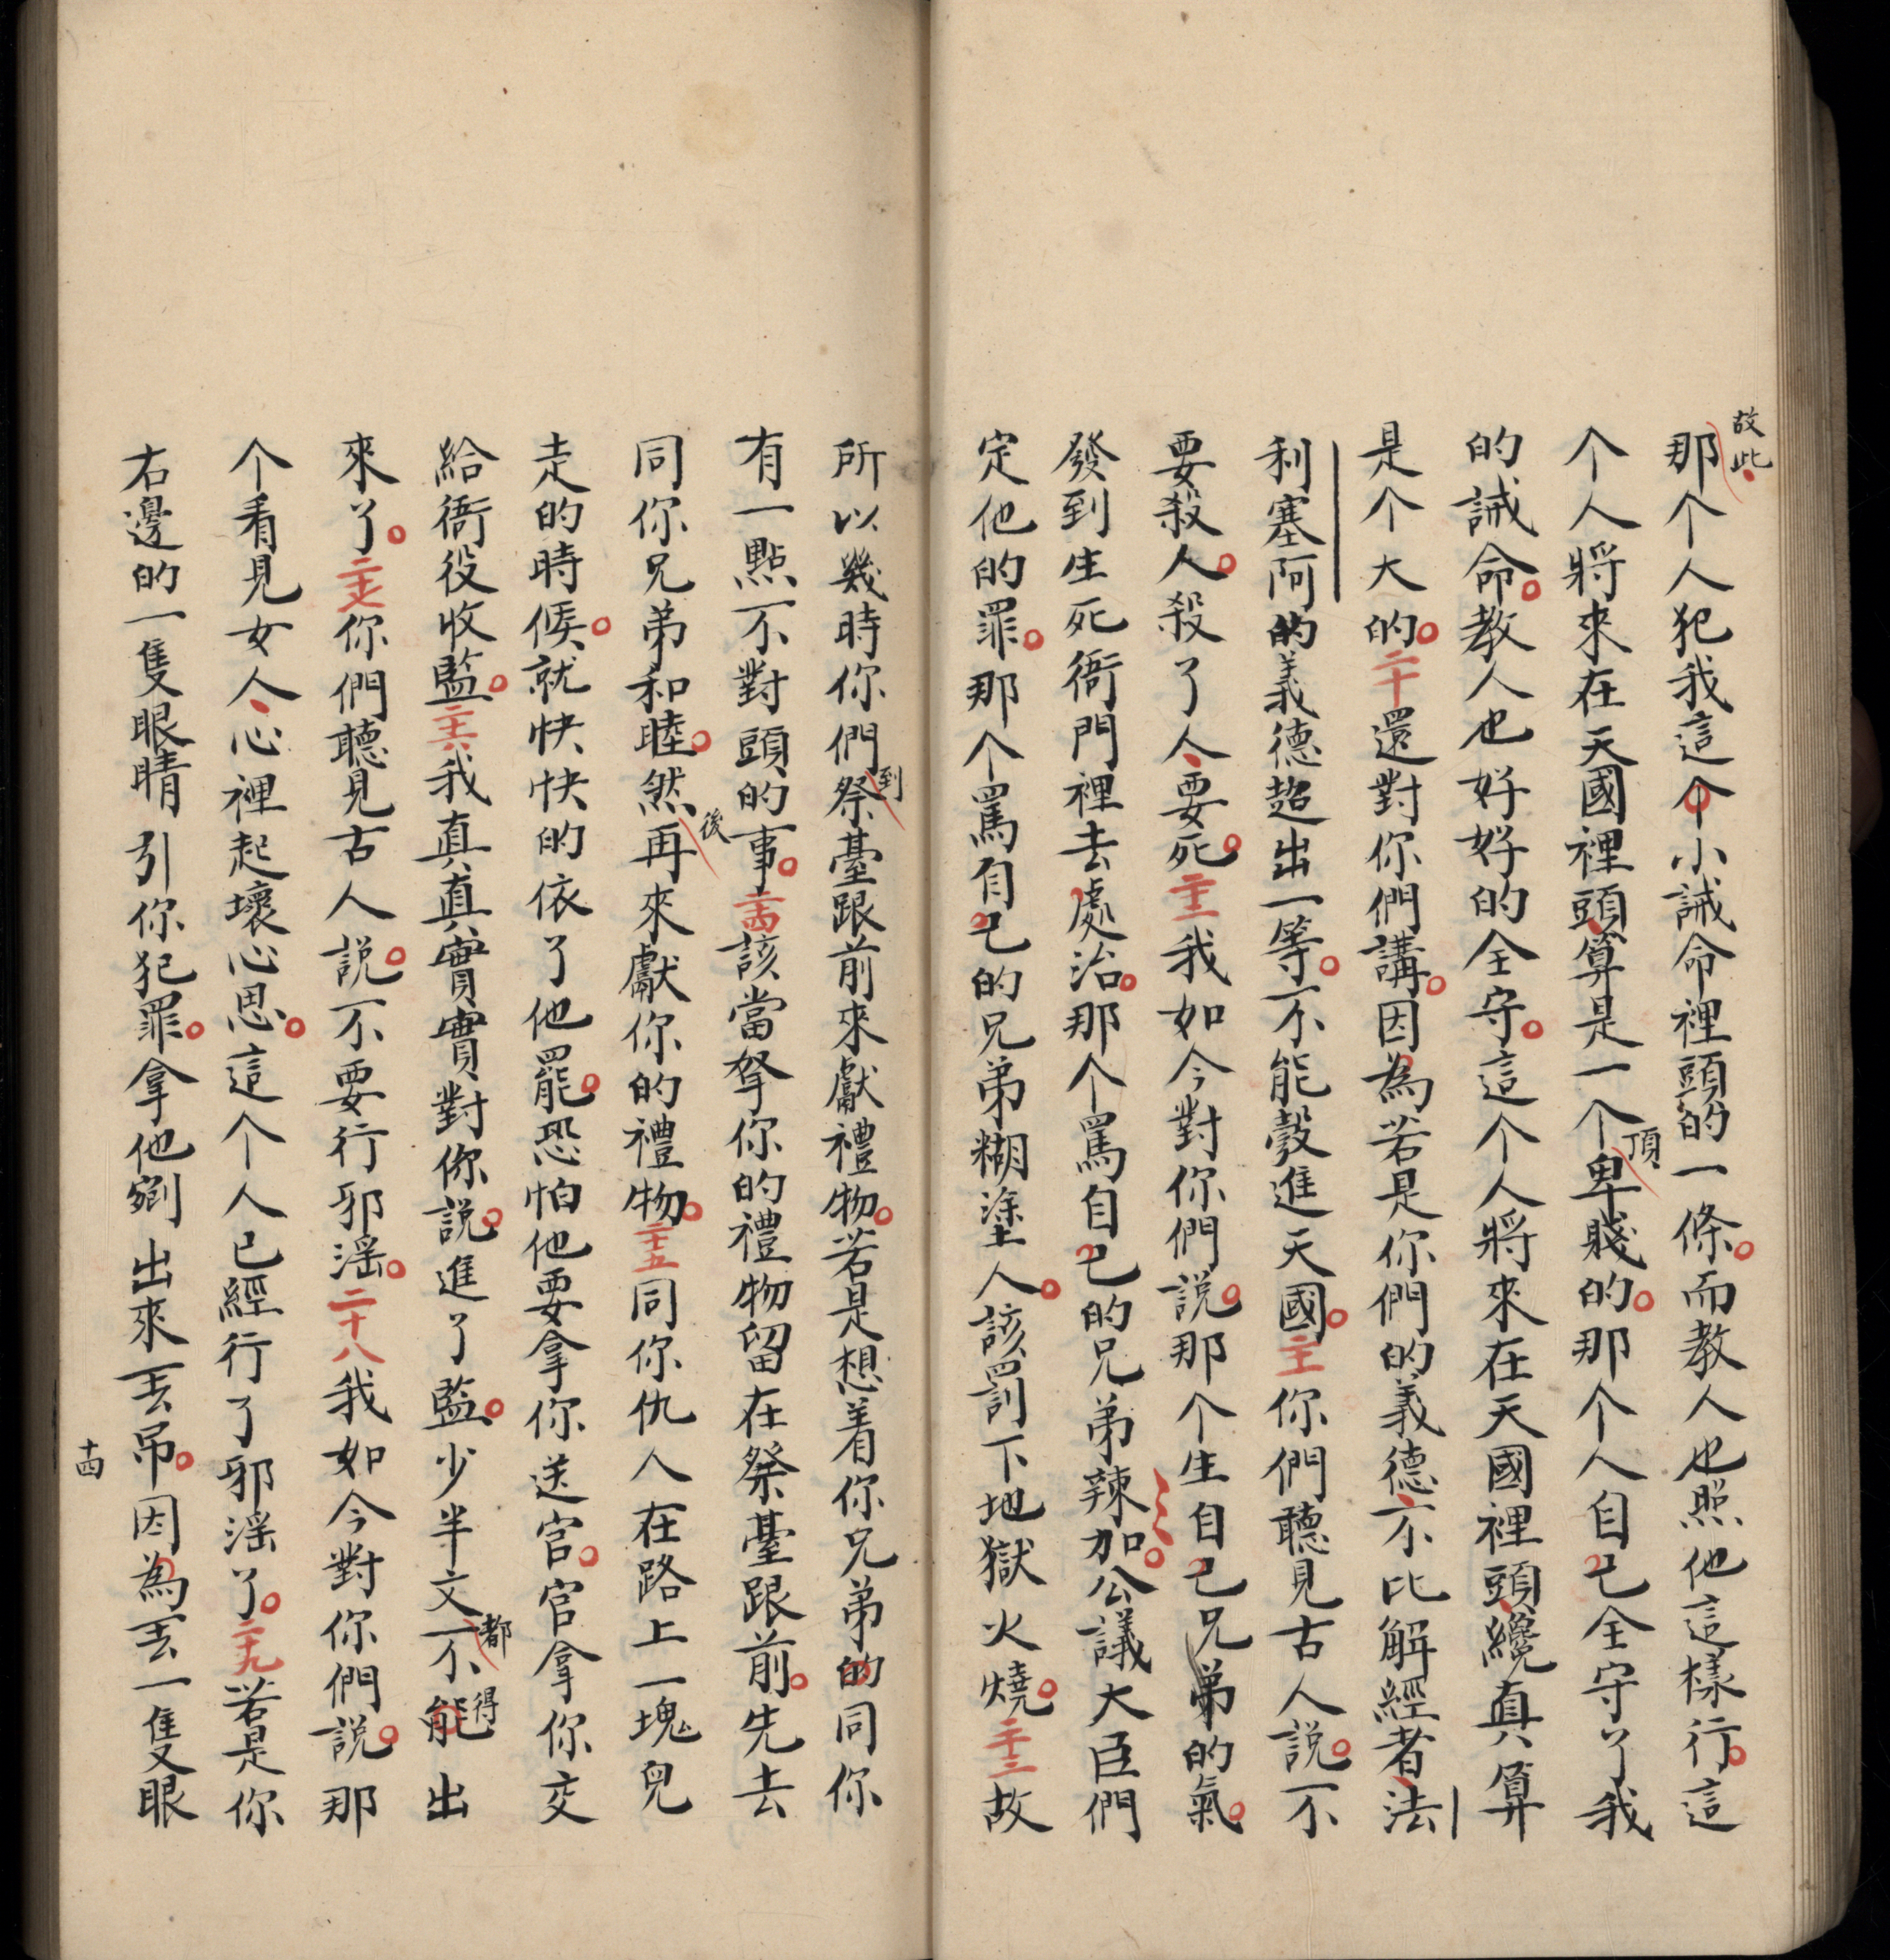 故此
那个人犯我這个小誡命裡頭的一條。而教人也照他這樣行。這
个人將來在天國裡頭算是一个頂卑賤的。那个人自己全守了我
的誡命。教人也好好的全守。這个人將來在天國裡頭纔真算
是个大的。二十還對你們講。因為若是你們的義德不比解經者、法
利塞阿的義德超出一等。不能彀進天國。二十一你們聽見古人說。不
要殺人。殺了人、要死。二十二我如今對你們說。那个生自己兄弟的氣。
發到生死衙門裡去處治。那个罵自己的兄弟辣加。公議大臣們
定他的罪。那个罵自己的兄弟糊塗人。該罰下地獄火燒。二十三故
所以幾時你們到祭臺跟前來獻禮物。若是想着你兄弟的同你
有一點不對頭的事。二十四該當拏你的禮物留在祭臺跟前。先去
同你兄弟和睦。然後再來獻你的禮物。二十五同你仇人在路上一塊兒
走的時候。就快快的依了他罷。恐怕他要拿你送官。官拿你交
給衙役收監。二十六我真真實實對你說。進了監。少半文都不能得出
來了。二十七你們聽見古人說。不要行邪滛。二十八我如今對你們說。那
个看見女人、心裡起壞心思。這个人已經行了邪滛了。二十九若是你
右邊的一隻眼睛引你犯罪。拿他剜出來丟吊。因為丟一隻眼
十四